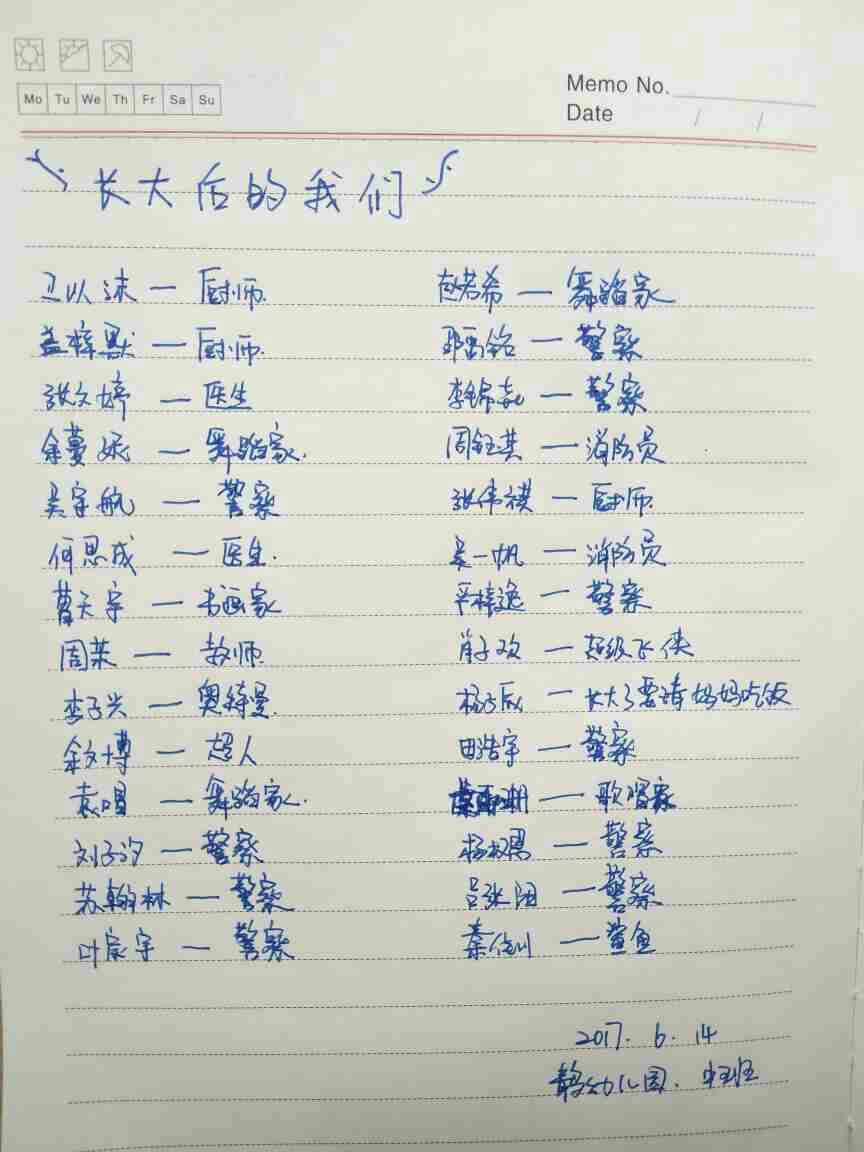 Mo Tu We Th Fr Sa Su
Memo No.
Date / /
长大后的我们
卫以沫 — 厨师
盖梓默 — 厨师
张文婷 — 医生
余蔓妮 — 舞蹈家
吴宇航 — 警察
何思成 — 医生
曹天宇 — 书画家
周莱 — 教师
李子兴 — 奥特曼
文博 — 超人
袁唱 — 舞蹈家
刘子汐 — 警察
苏翰林 — 警察
叶宸宇 — 警察
赵若希 — 舞蹈家
铭 — 警察
李锦 — 警察
周钰淇 — 消防员
张伟祺 — 厨师
吴一帆 — 消防员
严梓逸 — 警察
肖子欢 — 超级飞侠
杨子辰 — 长大了要请妈妈吃饭
田浩宇 — 警察
— 歌唱家
杨 — 警察
吕张阳 — 警察
秦 — 鲨鱼
2017. 6. 14
幼儿园. 中班